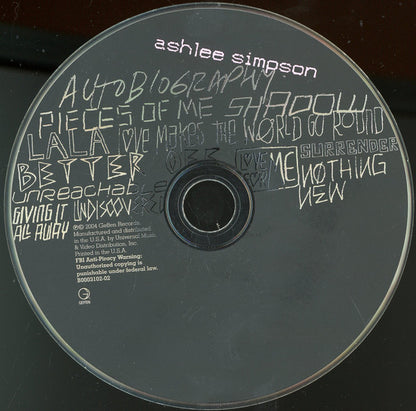 ashlee simpson
AUTOBIOGRAPHY
PIECES OF ME SHADOW
LALA LOVE MAKES THE WORLD GO ROUND
BETTER OFF LOVE ME SURRENDER
FOR
NOTHING
UNREACHABLE
NEW
GIVING IT UNDISCOVERED
ALL AWAY
℗© 2004 Geffen Records.
Manufactured and distributed
in the U.S.A. by Universal Music
& Video Distribution, Inc.
Printed in the U.S.A.
FBI Anti-Piracy Warning:
Unauthorized copying is
punishable under federal law.
B0003102-02
G
GEFFEN